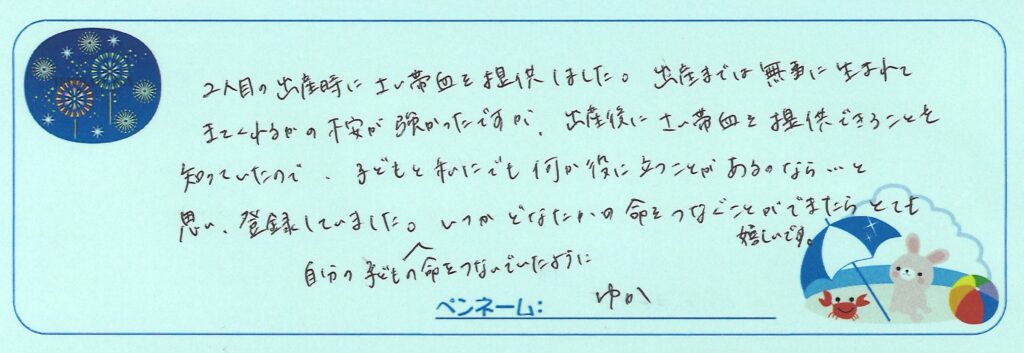 2人目の出産時にさい帯血を提供しました。出産までは無事に生まれて
きてくれるかの不安が強かったですが、出産後にさい帯血を提供できることを
知っていたので、子どもと私にでも何か役に立つことがあるのなら…と
思い、登録していました。いつかどなたかの命をつなぐことができたらとても
嬉しいです。
自分の子どもへ命をつないでいたように
ペンネーム: ゆか